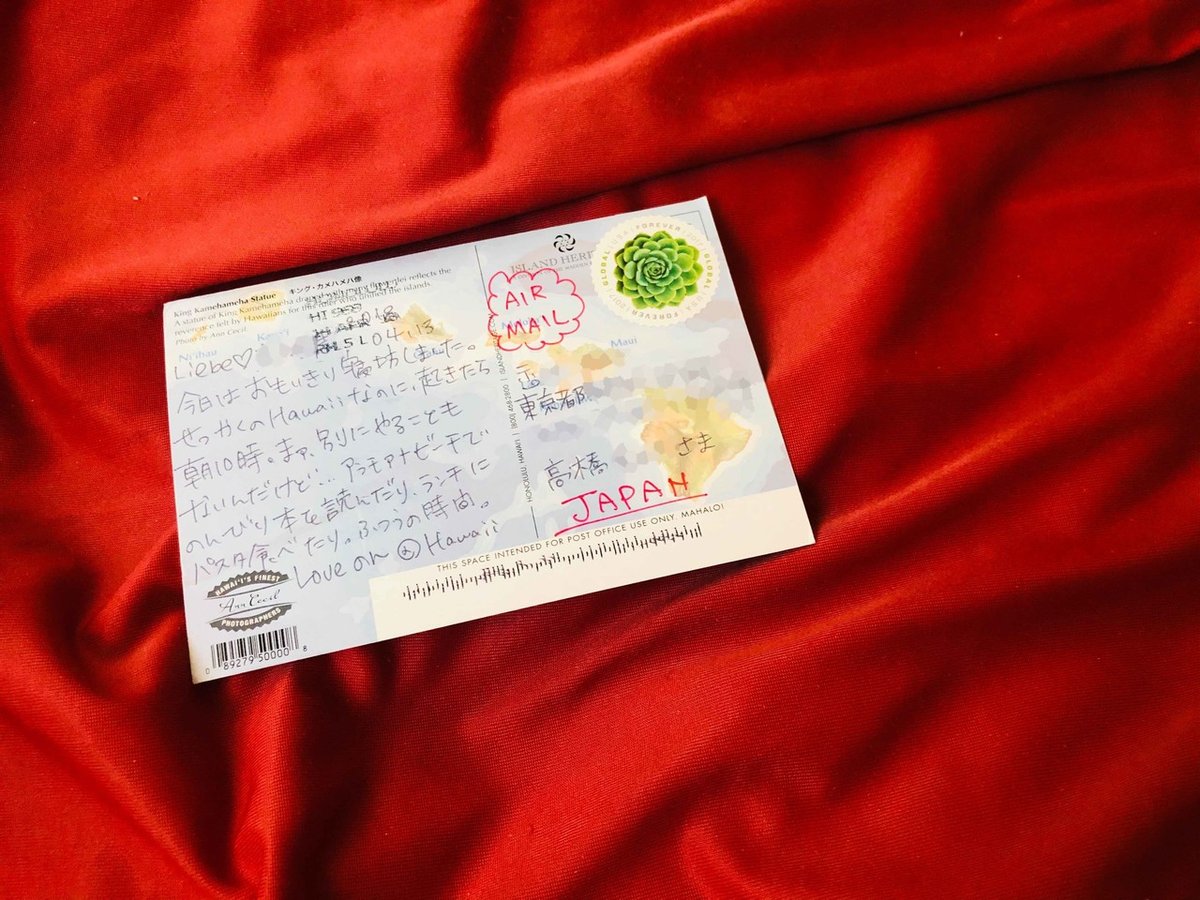 King Kamehameha Statue キング・カメハメハ像
A statue of King Kamehameha draped with many flower lei reflects the
reverence felt by Hawaiians for this ruler who unified the islands.
Photo by Ann Cecil
Ni'ihau
04.18
Liebe♡
今日はおもいきり寝坊しました。
せっかくのHawaiiなのに、起きたら
朝10時。まぁ、別にやることも
ないんだけど… アラモアナビーチで
のんびり本を読んだり、ランチに
パスタ食べたり。ふつうの時間。
Love on @Hawaii
HAWAI'I'S FINEST
Ann Cecil
PHOTOGRAPHERS
0 89279 50000 8
ISLAND HERITAGE
GLOBAL USA FOREVER 2017
AIR
MAIL
Maui
〒
東京都
高橋 さま
JAPAN
THIS SPACE INTENDED FOR POST OFFICE USE ONLY MAHALO!
HONOLULU, HAWAI'I (800) 468-2800